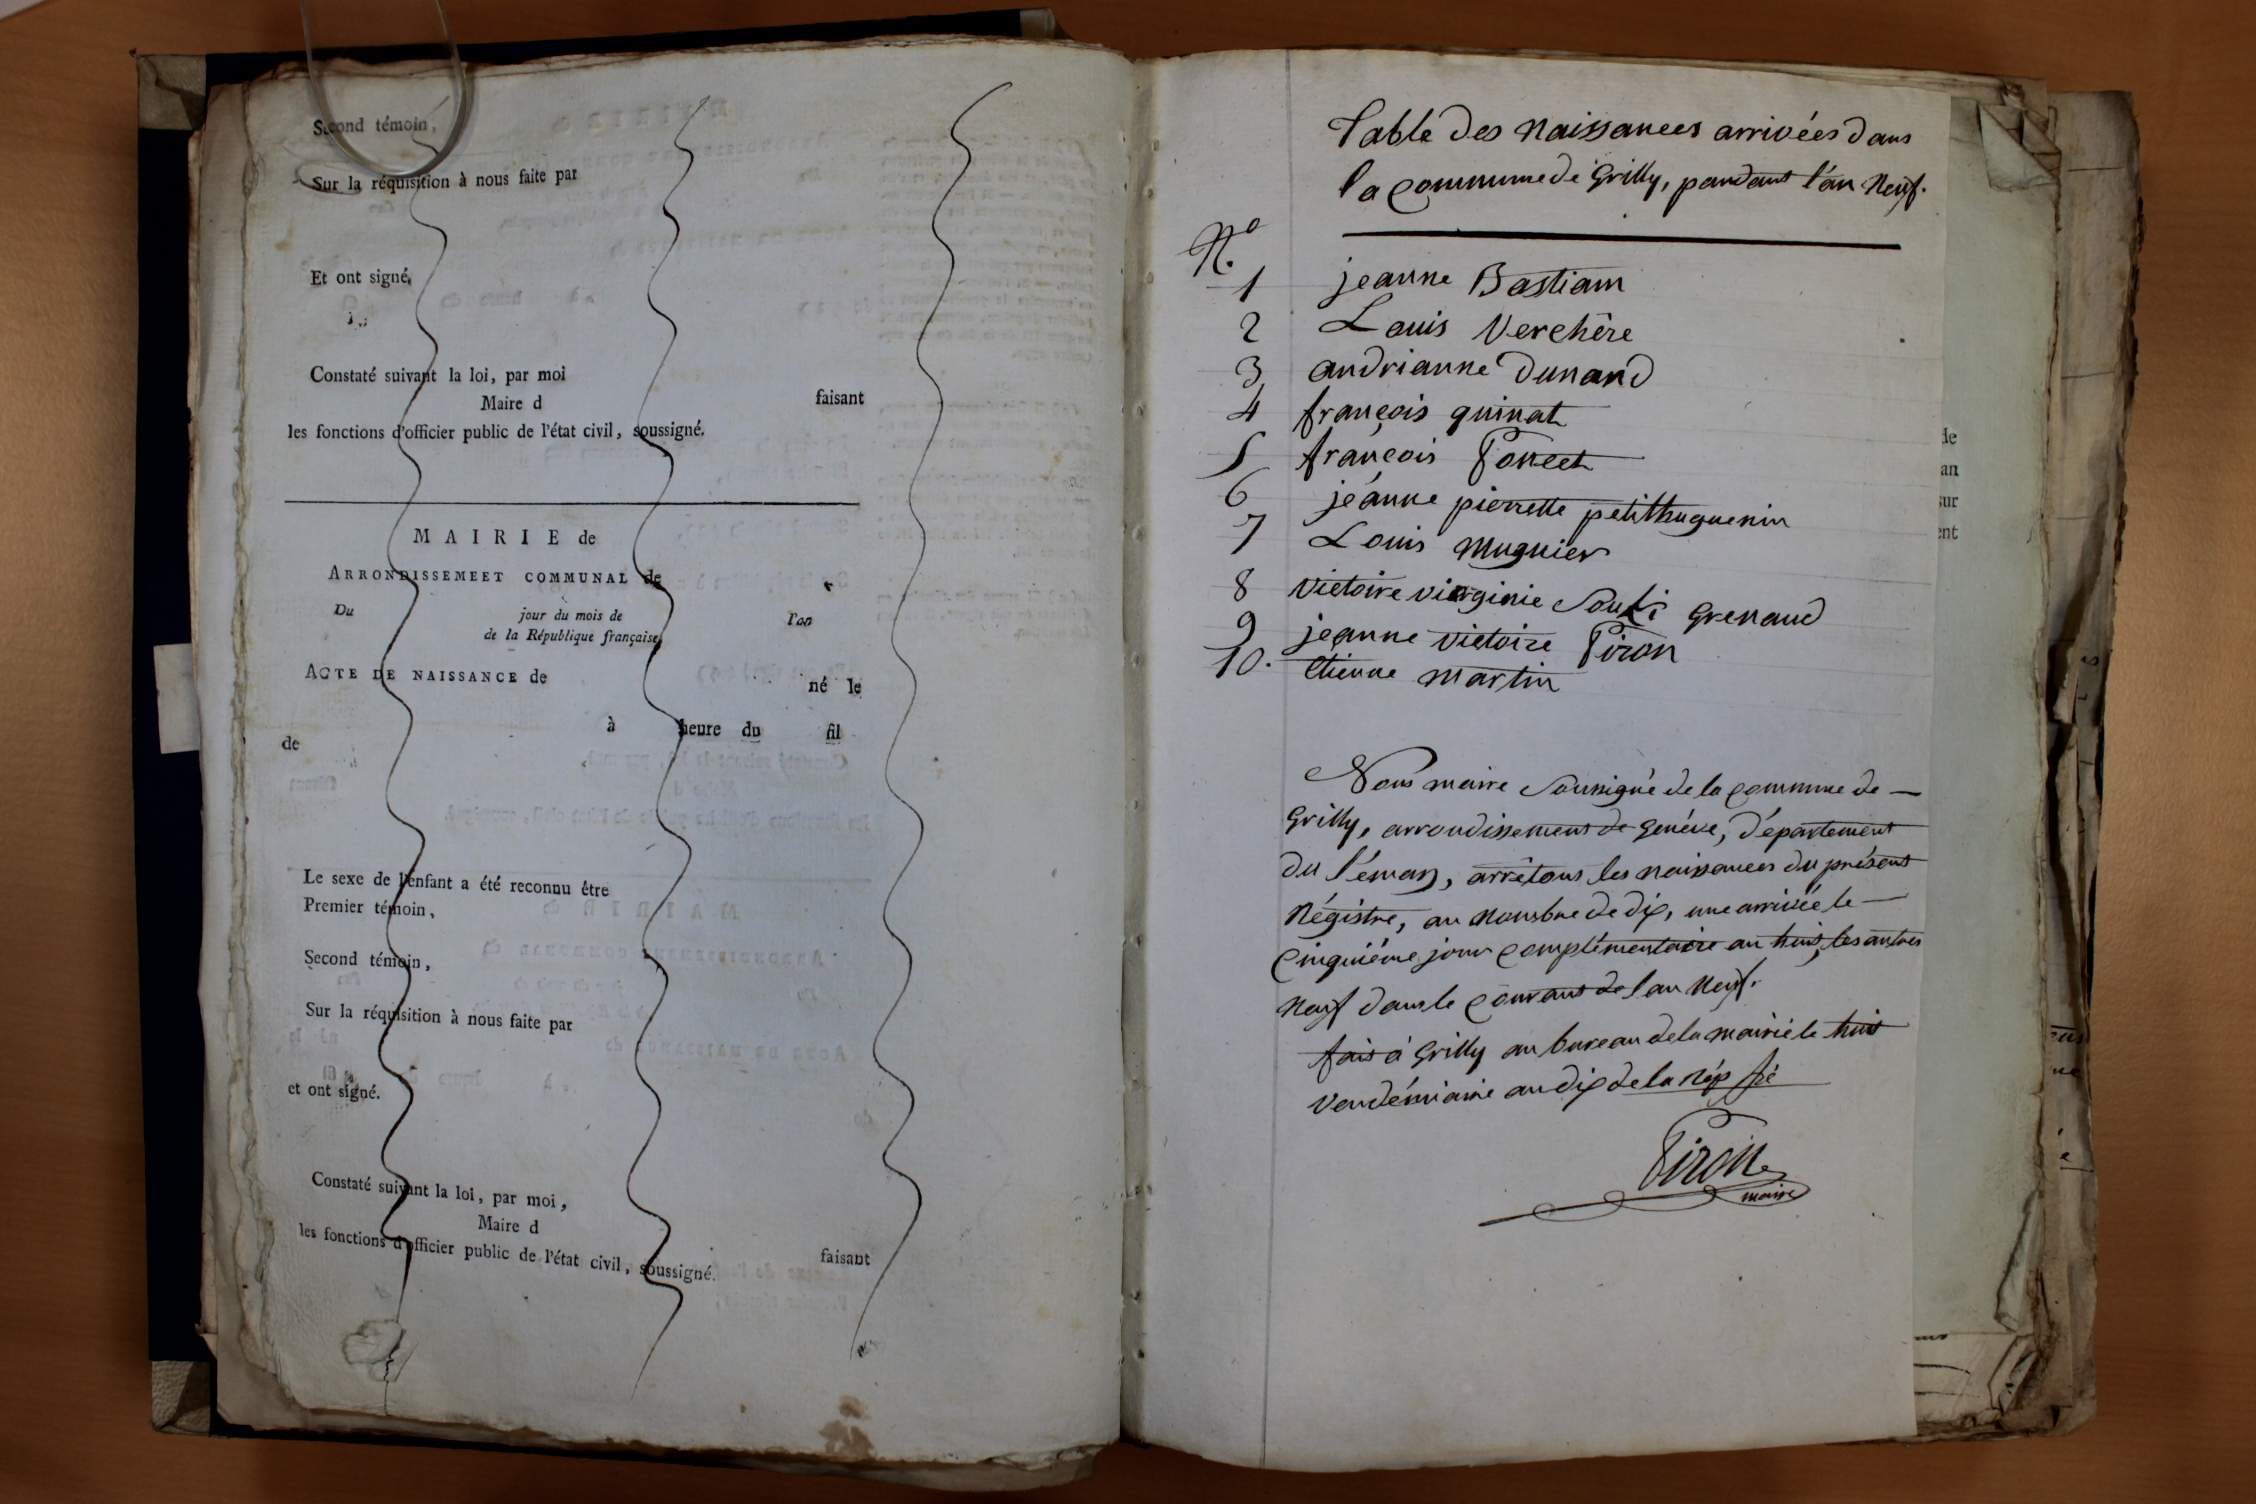 Second témoin,
Sur la réquisition à nous faite par
Et ont signé,
Constaté suivant la loi, par moi
Maire d faisant
les fonctions d'officier public de l'état civil, soussigné.
MAIRIE de
ARRONDISSEMEET COMMUNAL de
Du jour du mois de l'an
de la République française,
ACTE DE NAISSANCE de
né le
à heure du fil
de
Le sexe de l'enfant a été reconnu être
Premier témoin,
Second témoin,
Sur la réquisition à nous faite par
et ont signé.
Constaté suivant la loi, par moi,
Maire d faisant
les fonctions d'officier public de l'état civil, soussigné.
Table des Naissances arrivées dans
la Commune de Grilly, pendant l'an Neuf.
N.o
1 jeanne Bastiam
2 Louis Verchère
3 andrianne Dunand
4 françois guinat
5 françois Poncet
6 jeanne pierrette petithuguenin
7 Louis Mugnier
8 Victoire virginie Grenaud
9 jeanne victoire Piron
10. Etienne Martin
Nous maire Soussigné de la Commune de —
Grilly, arrondissement de Genève, département
du Léman, arrêtons les naissances du présent
Régistre, au Nombre de dix, une arrivée le —
Cinquième jour Complémentaire an huit, les autres
Neuf dans le Courant de l'an Neuf.
fait à Grilly au bureau de la mairie le huit
Vendémiaire an dix de la Rép. fse
Piron
maire
de
an
sur
ent